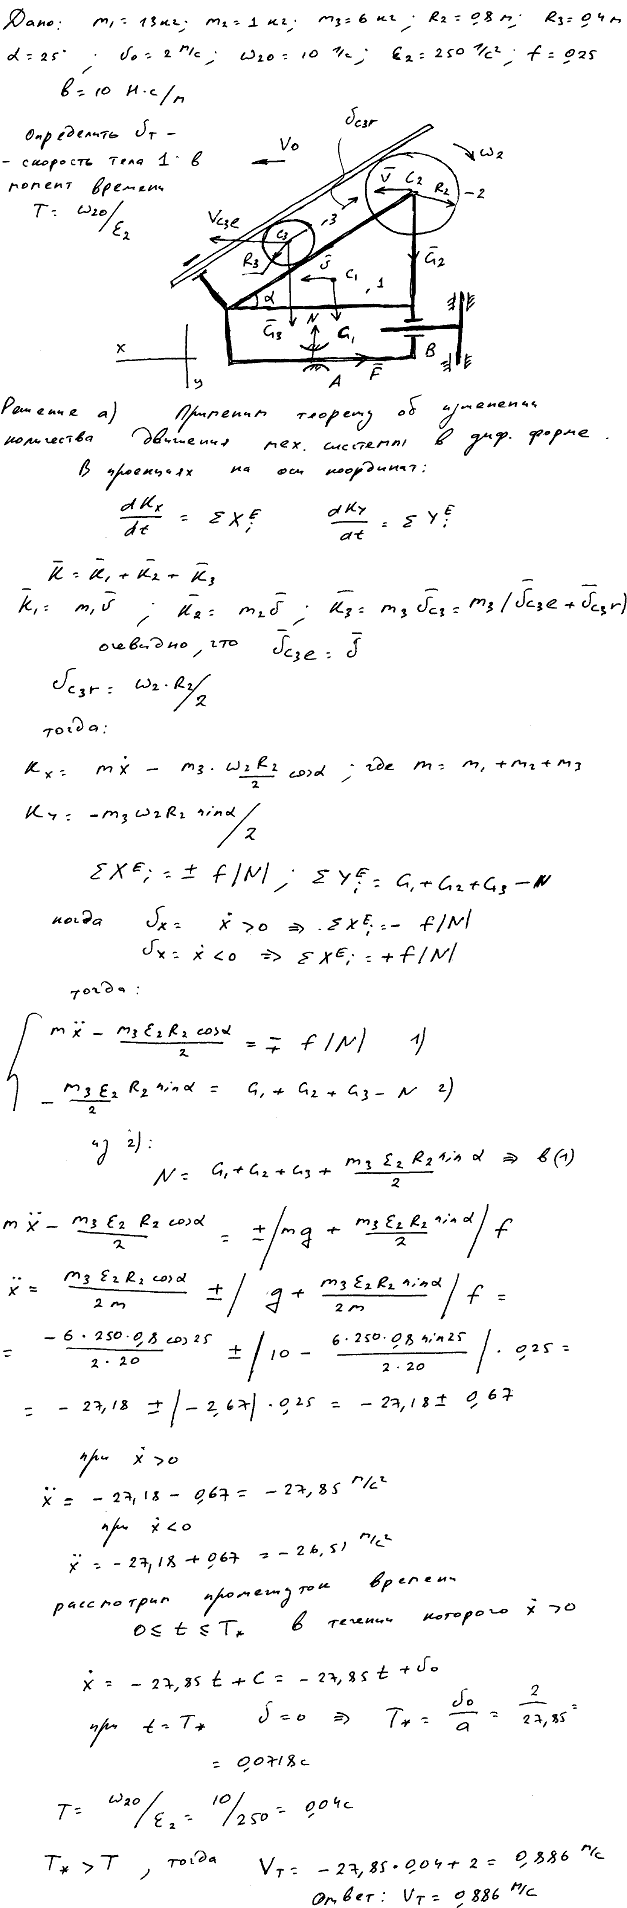 Дано: m₁ = 13 кг; m₂ = 1 кг; m₃ = 6 кг; R₂ = 0,8 м; R₃ = 0,4 м
α = 25°; υ₀ = 2 м/с; ω₂₀ = 10 1/с; ε₂ = 250 1/с²; f = 0,25
в = 10 Н·с/м
Определить υT –
– скорость тела 1 в
момент времени
T = ω₂₀/ε₂
V₀
υc₃r
ω₂
V̄ C₂ R₂ – 2
Vc₃e
C₃ , 3
R₃
Ḡ₂
ῡ C₁ , 1
α
Ḡ₃ N G₁
x
y
A F̄ B
Решение а) Применим теорему об изменении
количества движения мех. системы в диф. форме.
В проекциях на оси координат:
dKx/dt = ΣXᵢᴱ dKy/dt = ΣYᵢᴱ
K̄ = K̄₁ + K̄₂ + K̄₃
K̄₁ = m₁ῡ ; K̄₂ = m₂ῡ ; K̄₃ = m₃ῡc₃ = m₃(ῡc₃e + ῡc₃r)
очевидно, что ῡc₃e = ῡ
υc₃r = ω₂·R₂/2
тогда:
Kx = mẋ – m₃·ω₂R₂/2 cosα ; где m = m₁ + m₂ + m₃
Ky = –m₃ω₂R₂ sinα/2
ΣXᴱᵢ = ± f|N| ; ΣYᵢᴱ = G₁ + G₂ + G₃ – N
когда υx = ẋ > 0 ⇒ ΣXᴱᵢ = – f|N|
υx = ẋ < 0 ⇒ ΣXᴱᵢ = + f|N|
тогда:
mẍ – m₃ε₂R₂ cosα/2 = ∓ f|N| 1)
– m₃ε₂/2 R₂ sinα = G₁ + G₂ + G₃ – N 2)
из 2):
N = G₁ + G₂ + G₃ + m₃ε₂R₂ sinα/2 ⇒ в (1)
mẍ – m₃ε₂R₂ cosα/2 = ±|mg + m₃ε₂R₂ sinα/2| f
ẍ = m₃ε₂R₂ cosα/2m ± |g + m₃ε₂R₂ sinα/2m| f =
= –6·250·0,8 cos25/2·20 ± |10 – 6·250·0,8 sin25/2·20| · 0,25 =
= – 27,18 ± |– 2,67| · 0,25 = – 27,18 ± 0,67
при ẋ > 0
ẍ = – 27,18 – 0,67 = – 27,85 м/с²
при ẋ < 0
ẍ = – 27,18 + 0,67 = – 26,51 м/с²
рассмотрим промежуток времени
0 ≤ t ≤ T* в течении которого ẋ > 0
ẋ = – 27,85 t + C = – 27,85 t + υ₀
при t = T* υ = 0 ⇒ T* = υ₀/a = 2/27,85 =
= 0,0718 с
T = ω₂₀/ε₂ = 10/250 = 0,04 с
T* > T , тогда VT = – 27,85·0,04 + 2 = 0,886 м/с
Ответ: VT = 0,886 м/с